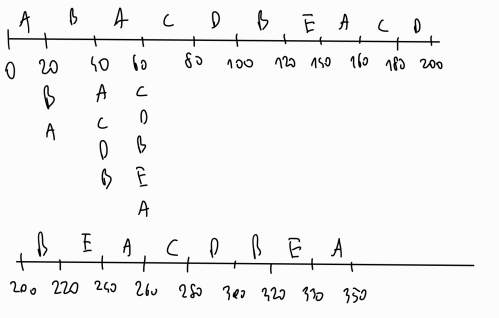 A B A C D B E A C D
0 20 40 60 80 100 120 140 160 180 200
B A C
A C D
D B
B E
A
B E A C D B E A
200 220 240 260 280 300 320 330 350